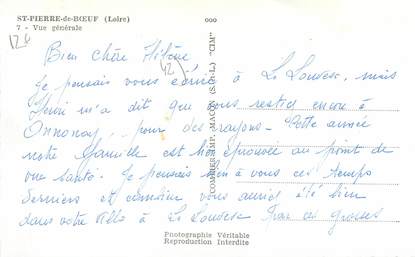 ST-PIERRE-de-BŒUF (Loire)
7 - Vue générale
000
126
Bien chère Hélène
(42)
Je pensais vous écrire à La Louvesc, mais
m'a dit que vous restiez encore à
Annonay... pour des rayons - Cette année
notre famille est bien éprouvée au point de
vue santé. Je pensais bien à vous ces temps
derniers et combien vous auriez été bien
dans votre villa à La Louvesc
grosses
COMBIER IMP. MACON (S.-et-L.) "CIM"
Photographie Véritable
Reproduction Interdite